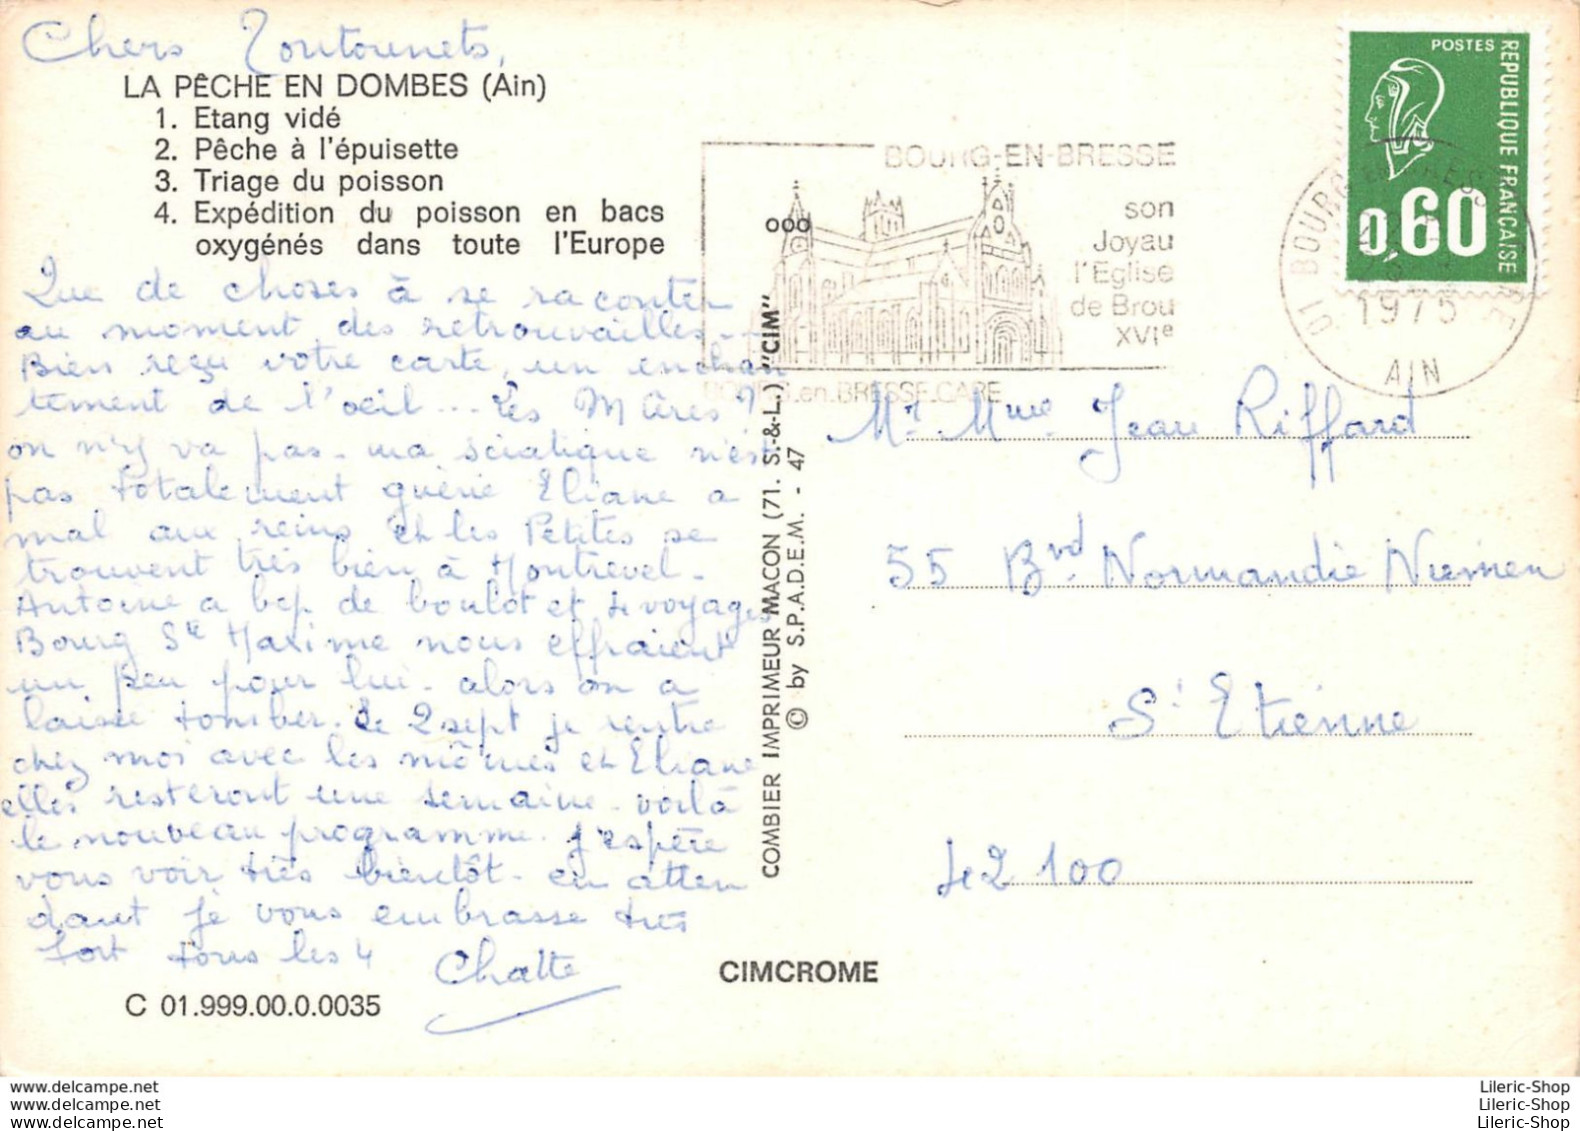 Chers Toutounets,
LA PÊCHE EN DOMBES (Ain)
1. Etang vidé
2. Pêche à l'épuisette
3. Triage du poisson
4. Expédition du poisson en bacs
oxygénés dans toute l'Europe
Que de choses à se raconter
au moment des retrouvailles--
Bien reçu votre carte, un enchan
tement de l'oeil... Les Mûres?
on n'y va pas - ma sciatique n'est
pas totalement guérie Eliane a
mal aux reins et les Petites se
trouvent très bien à Montrevel.
Antoine a bcp de boulot et 4 voyages
Bourg Ste Maxime nous effraient
un peu pour lui - alors on a
laissé tomber. Le 2 sept je rentre
chez moi avec les mômes et Eliane
elles resteront une semaine - voilà
le nouveau programme. J'espère
vous voir très bientôt - en atten
dant je vous embrasse très
fort tous les 4 Chatte
C 01.999.00.0.0035
COMBIER IMPRIMEUR MACON (71. S.-&-L.) "CIM"
© by S.P.A.D.E.M. - 47
CIMCROME
BOURG-EN-BRESSE
son
Joyau
l'Eglise
de Brou
XVIe
BOURG.en.BRESSE.GARE
POSTES
REPUBLIQUE FRANÇAISE
0,60
01 BOURG EN BRESSE GARE
1975
AIN
Mr Mme Jean Riffard
55 Bvd Normandie Niemen
St Etienne
42100
delcampe.net
delcampe.net
delcampe.net
Lileric-Shop
Lileric-Shop
Lileric-Shop